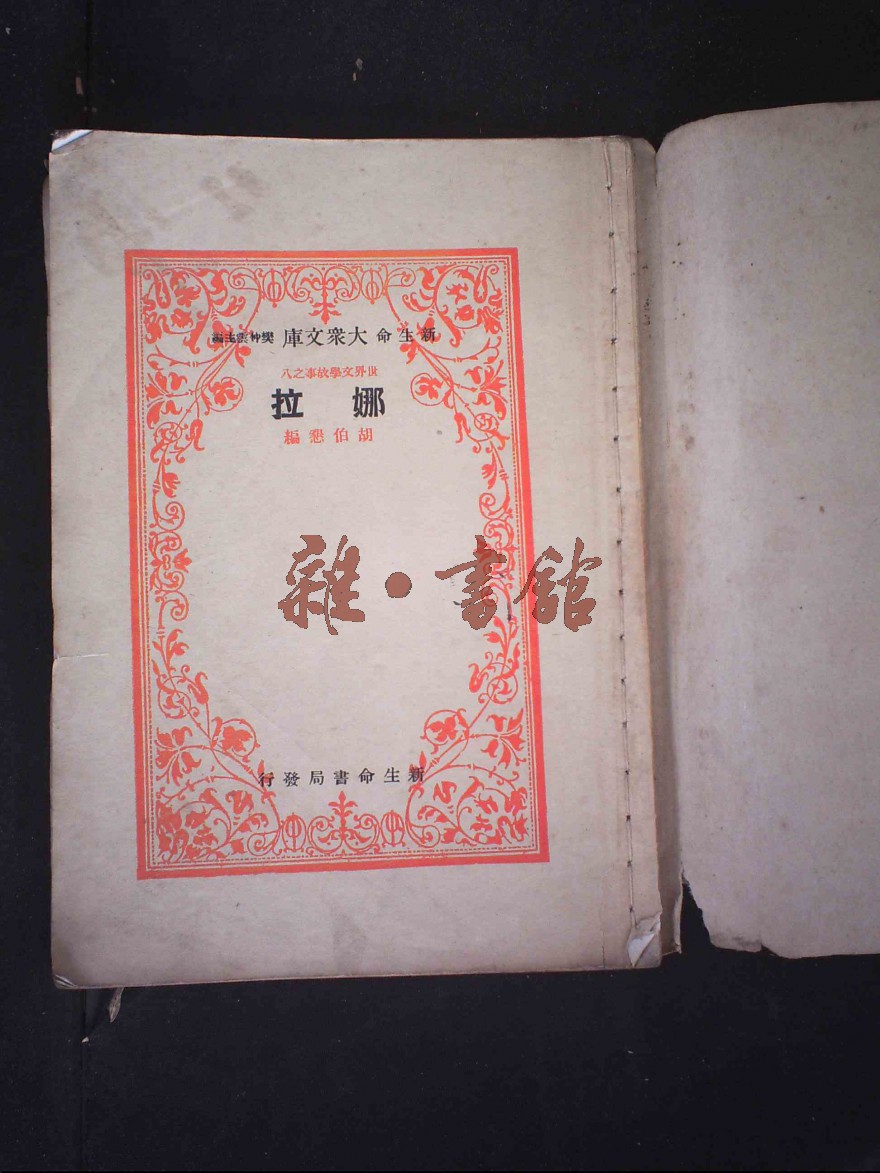 新生命大衆文庫 樊仲雲主編
世界文學故事之八
娜拉
胡伯懇編
雜·書館
新生命書局發行